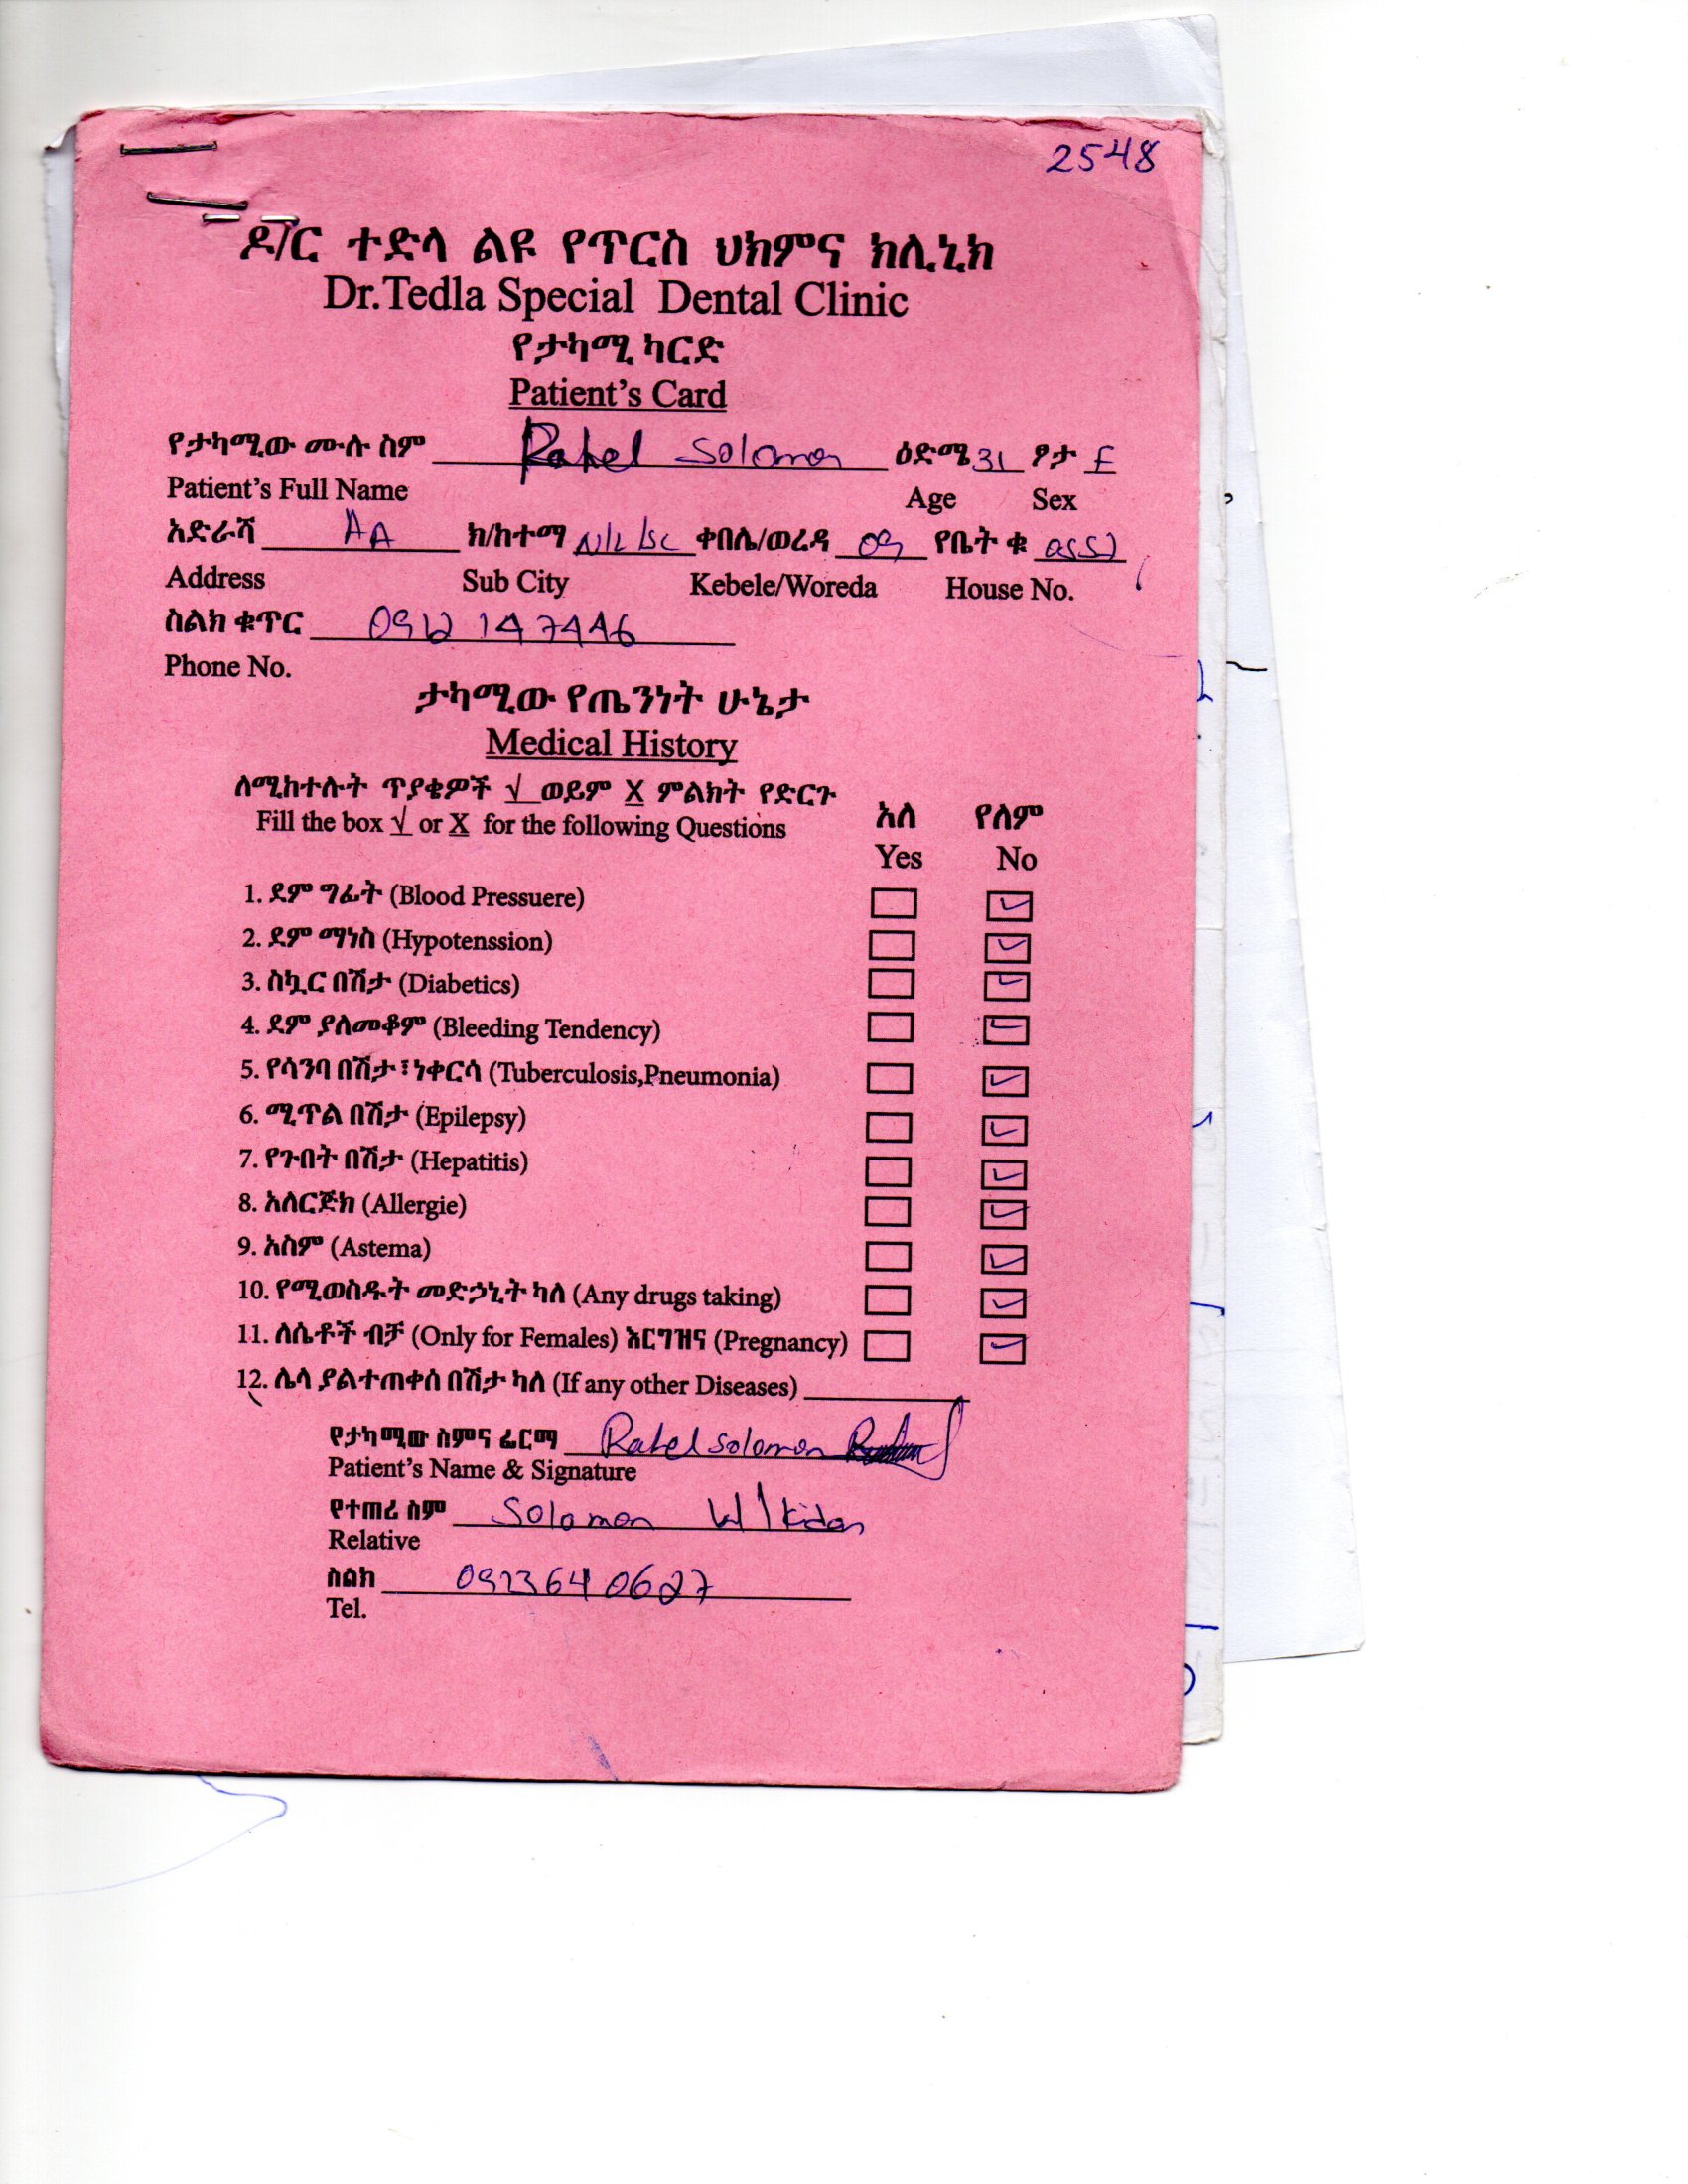 2548
ዶ/ር ተድላ ልዩ የጥርስ ህክምና ክሊኒክ
Dr.Tedla Special Dental Clinic
የታካሚ ካርድ
Patient's Card
የታካሚው ሙሉ ስም Rahel Solomon ዕድሜ 31 ፆታ F
Patient's Full Name Age Sex
አድራሻ AA ክ/ከተማ N/L/SC ቀበሌ/ወረዳ 09 የቤት ቁ
Address Sub City Kebele/Woreda House No.
ስልክ ቁጥር 0912 147446
Phone No.
ታካሚው የጤንነት ሁኔታ
Medical History
ለሚከተሉት ጥያቄዎች √ ወይም X ምልክት የድርጉ
Fill the box √ or X for the following Questions
አለ የለም
Yes No
1. ደም ግፊት (Blood Pressuere)
2. ደም ማነስ (Hypotenssion)
3. ስኳር በሽታ (Diabetics)
4. ደም ያለመቆም (Bleeding Tendency)
5. የሳንባ በሽታ፣ነቀርሳ (Tuberculosis,Pneumonia)
6. ሚጥል በሽታ (Epilepsy)
7. የጉበት በሽታ (Hepatitis)
8. አለርጅክ (Allergie)
9. አስም (Astema)
10. የሚወስዱት መድኃኒት ካለ (Any drugs taking)
11. ለሴቶች ብቻ (Only for Females) እርግዝና (Pregnancy)
12. ሌላ ያልተጠቀሰ በሽታ ካለ (If any other Diseases)
የታካሚው ስምና ፊርማ Rahel Solomon
Patient's Name & Signature
የተጠሪ ስም Solomon W/kidan
Relative
ስልክ 0923640627
Tel.